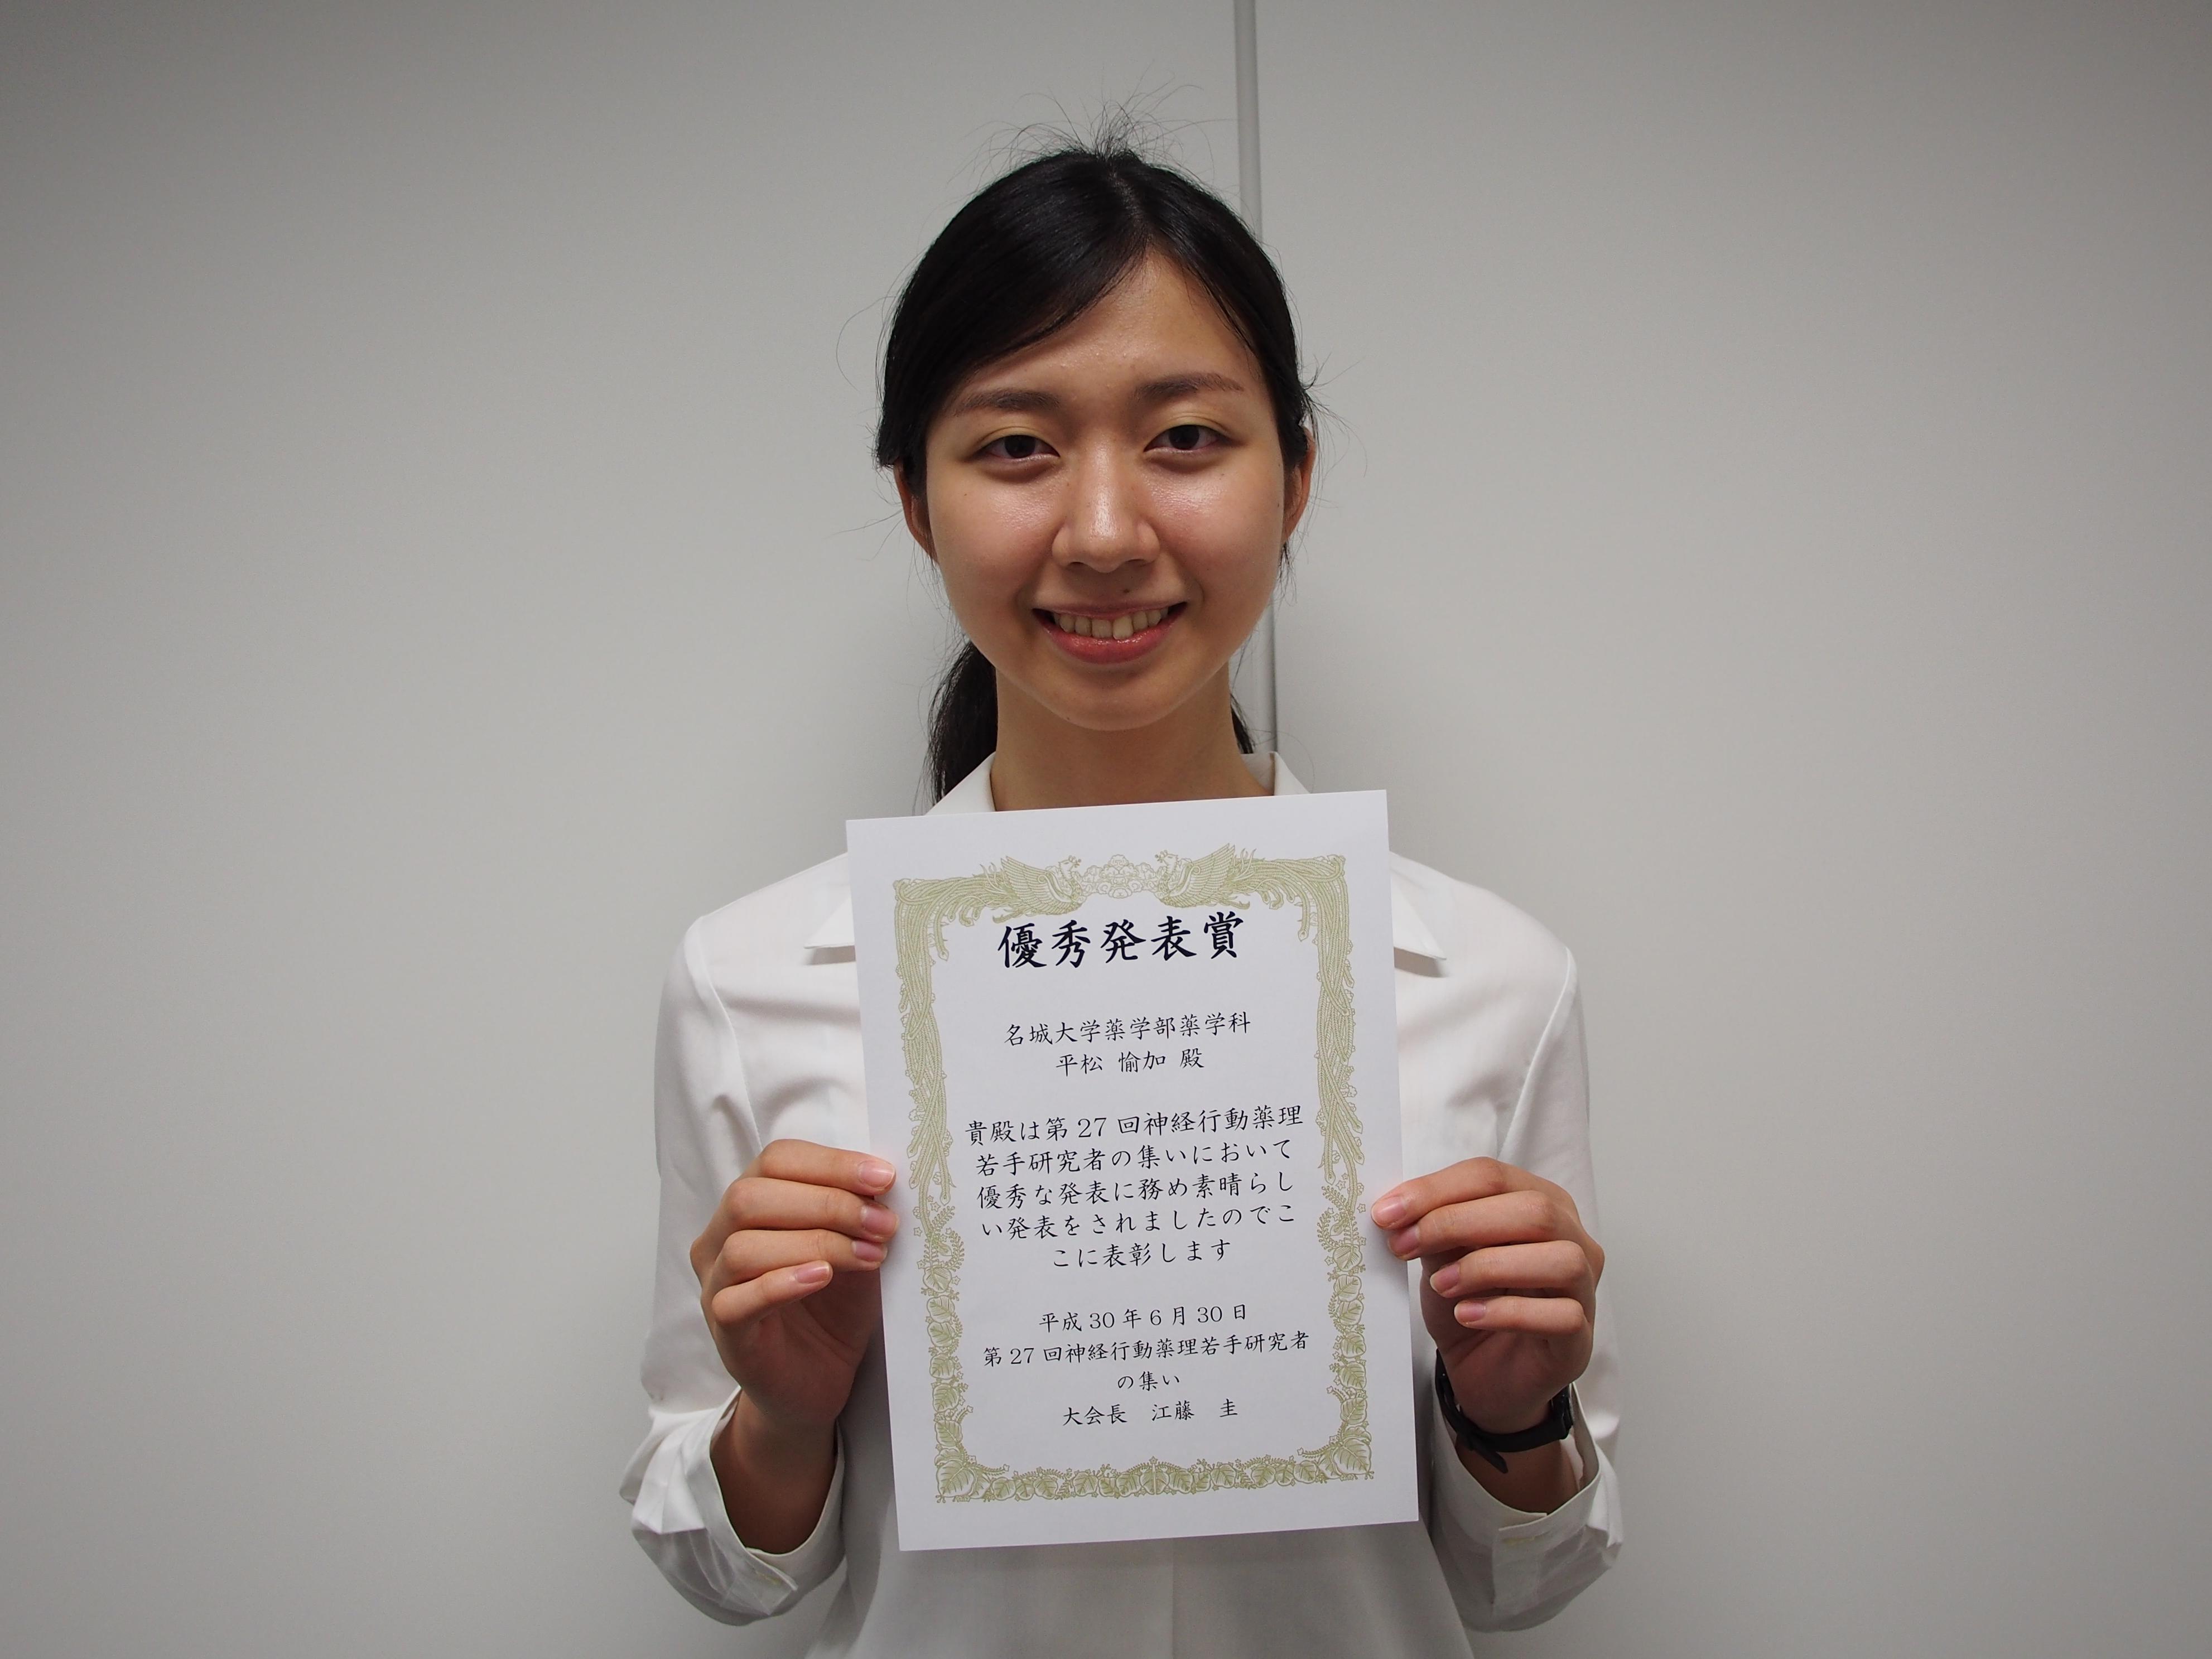 優秀発表賞
名城大学薬学部薬学科
平松 愉加 殿
貴殿は第 27 回神経行動薬理
若手研究者の集いにおいて
優秀な発表に務め素晴らし
い発表をされましたのでこ
こに表彰します
平成 30 年 6 月 30 日
第 27 回神経行動薬理若手研究者
の集い
大会長 江藤 圭